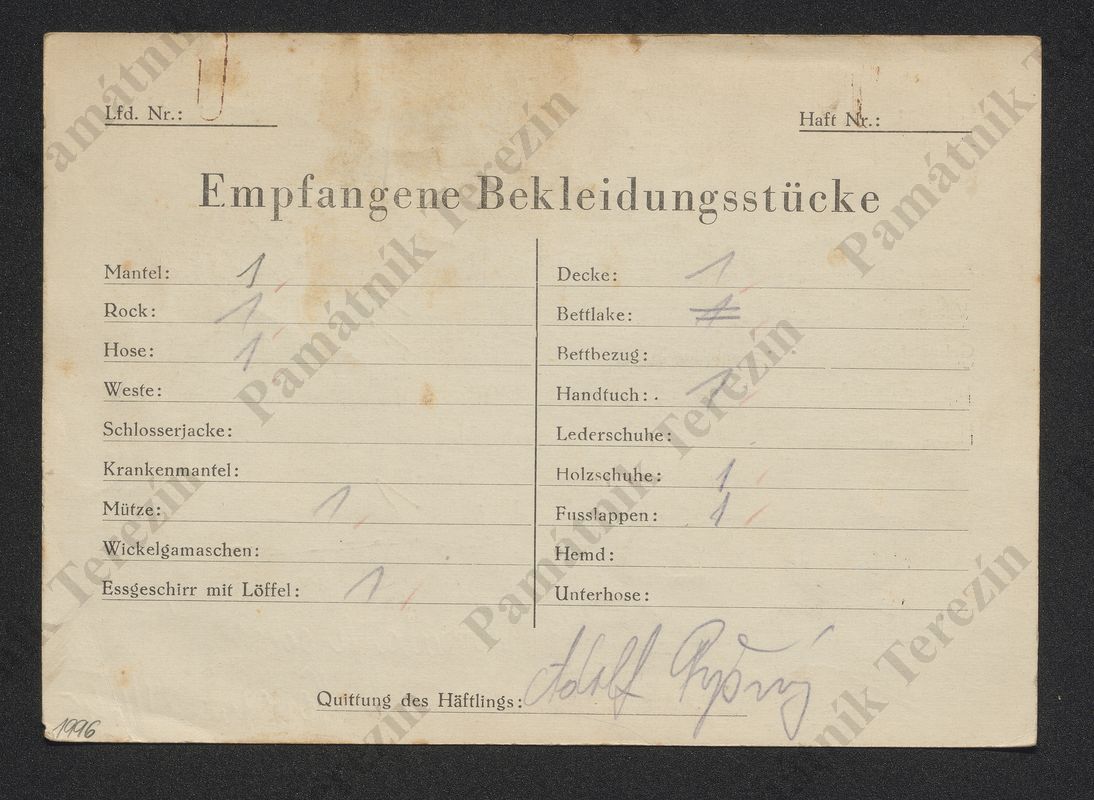 Lfd. Nr.:
Haft Nr.:
Empfangene Bekleidungsstücke
Mantel: 1
Rock: 1
Hose: 1
Weste:
Schlosserjacke:
Krankenmantel:
Mütze: 1
Wickelgamaschen:
Essgeschirr mit Löffel: 1
Decke: 1
Bettlake: 1
Bettbezug:
Handtuch: 1
Lederschuhe:
Holzschuhe: 1
Fusslappen: 1
Hemd:
Unterhose:
Quittung des Häftlings: Adolf
1996
Památník Terezín